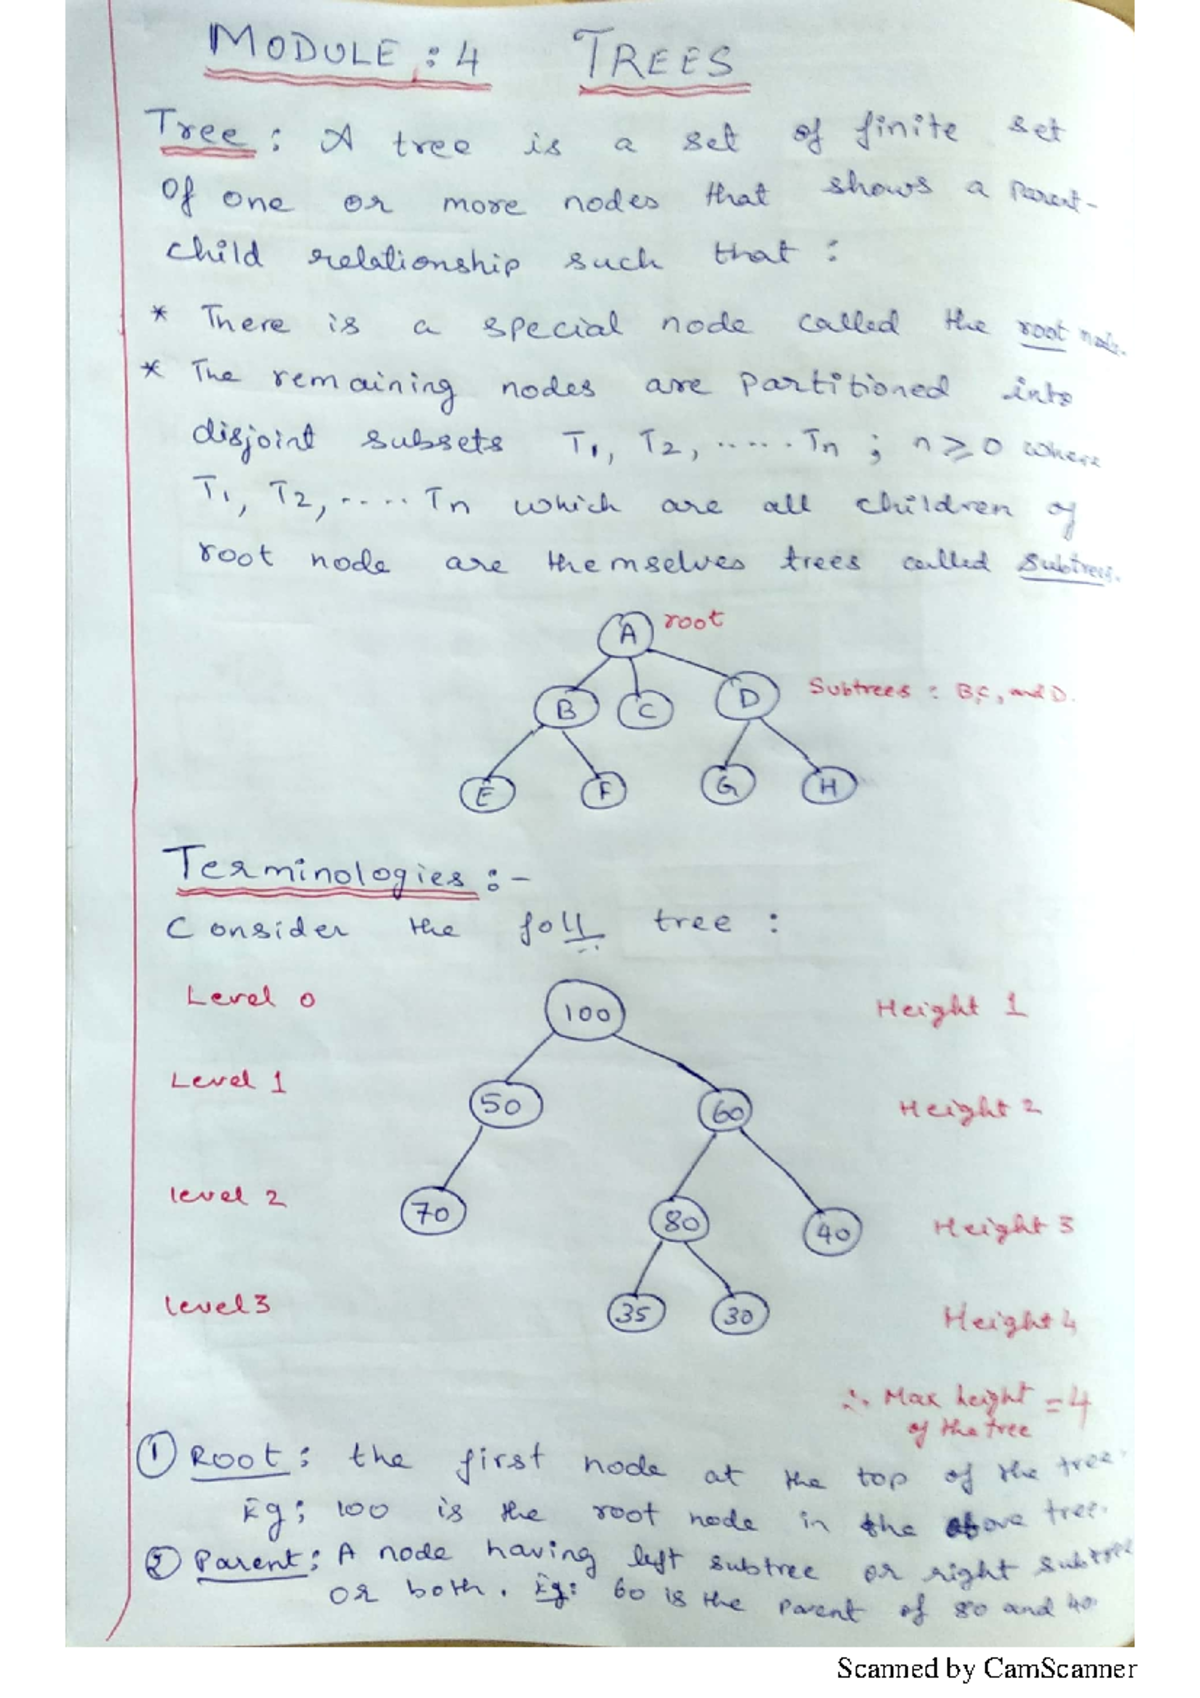 MODULE : 4 TREES
Tree : A tree is a set of finite set
of one or more nodes that shows a parent-
child relationship such that :
* There is a special node called the root node.
* The remaining nodes are partitioned into
disjoint subsets T1, T2, ..... Tn ; n ≥ 0 where
T1, T2, ..... Tn which are all children of
root node are themselves trees called subtrees.
A root
B C D Subtrees : B, C, and D.
E F G H
Terminologies :-
Consider the foll tree :
Level 0 100 Height 1
Level 1 50 60 Height 2
level 2 70 80 40 Height 3
level 3 35 30 Height 4
∴ Max height = 4
of the tree
① Root : the first node at the top of the tree.
Eg : 100 is the root node in the above tree.
② Parent : A node having left subtree or right subtree
or both. Eg : 60 is the parent of 80 and 40
Scanned by CamScanner